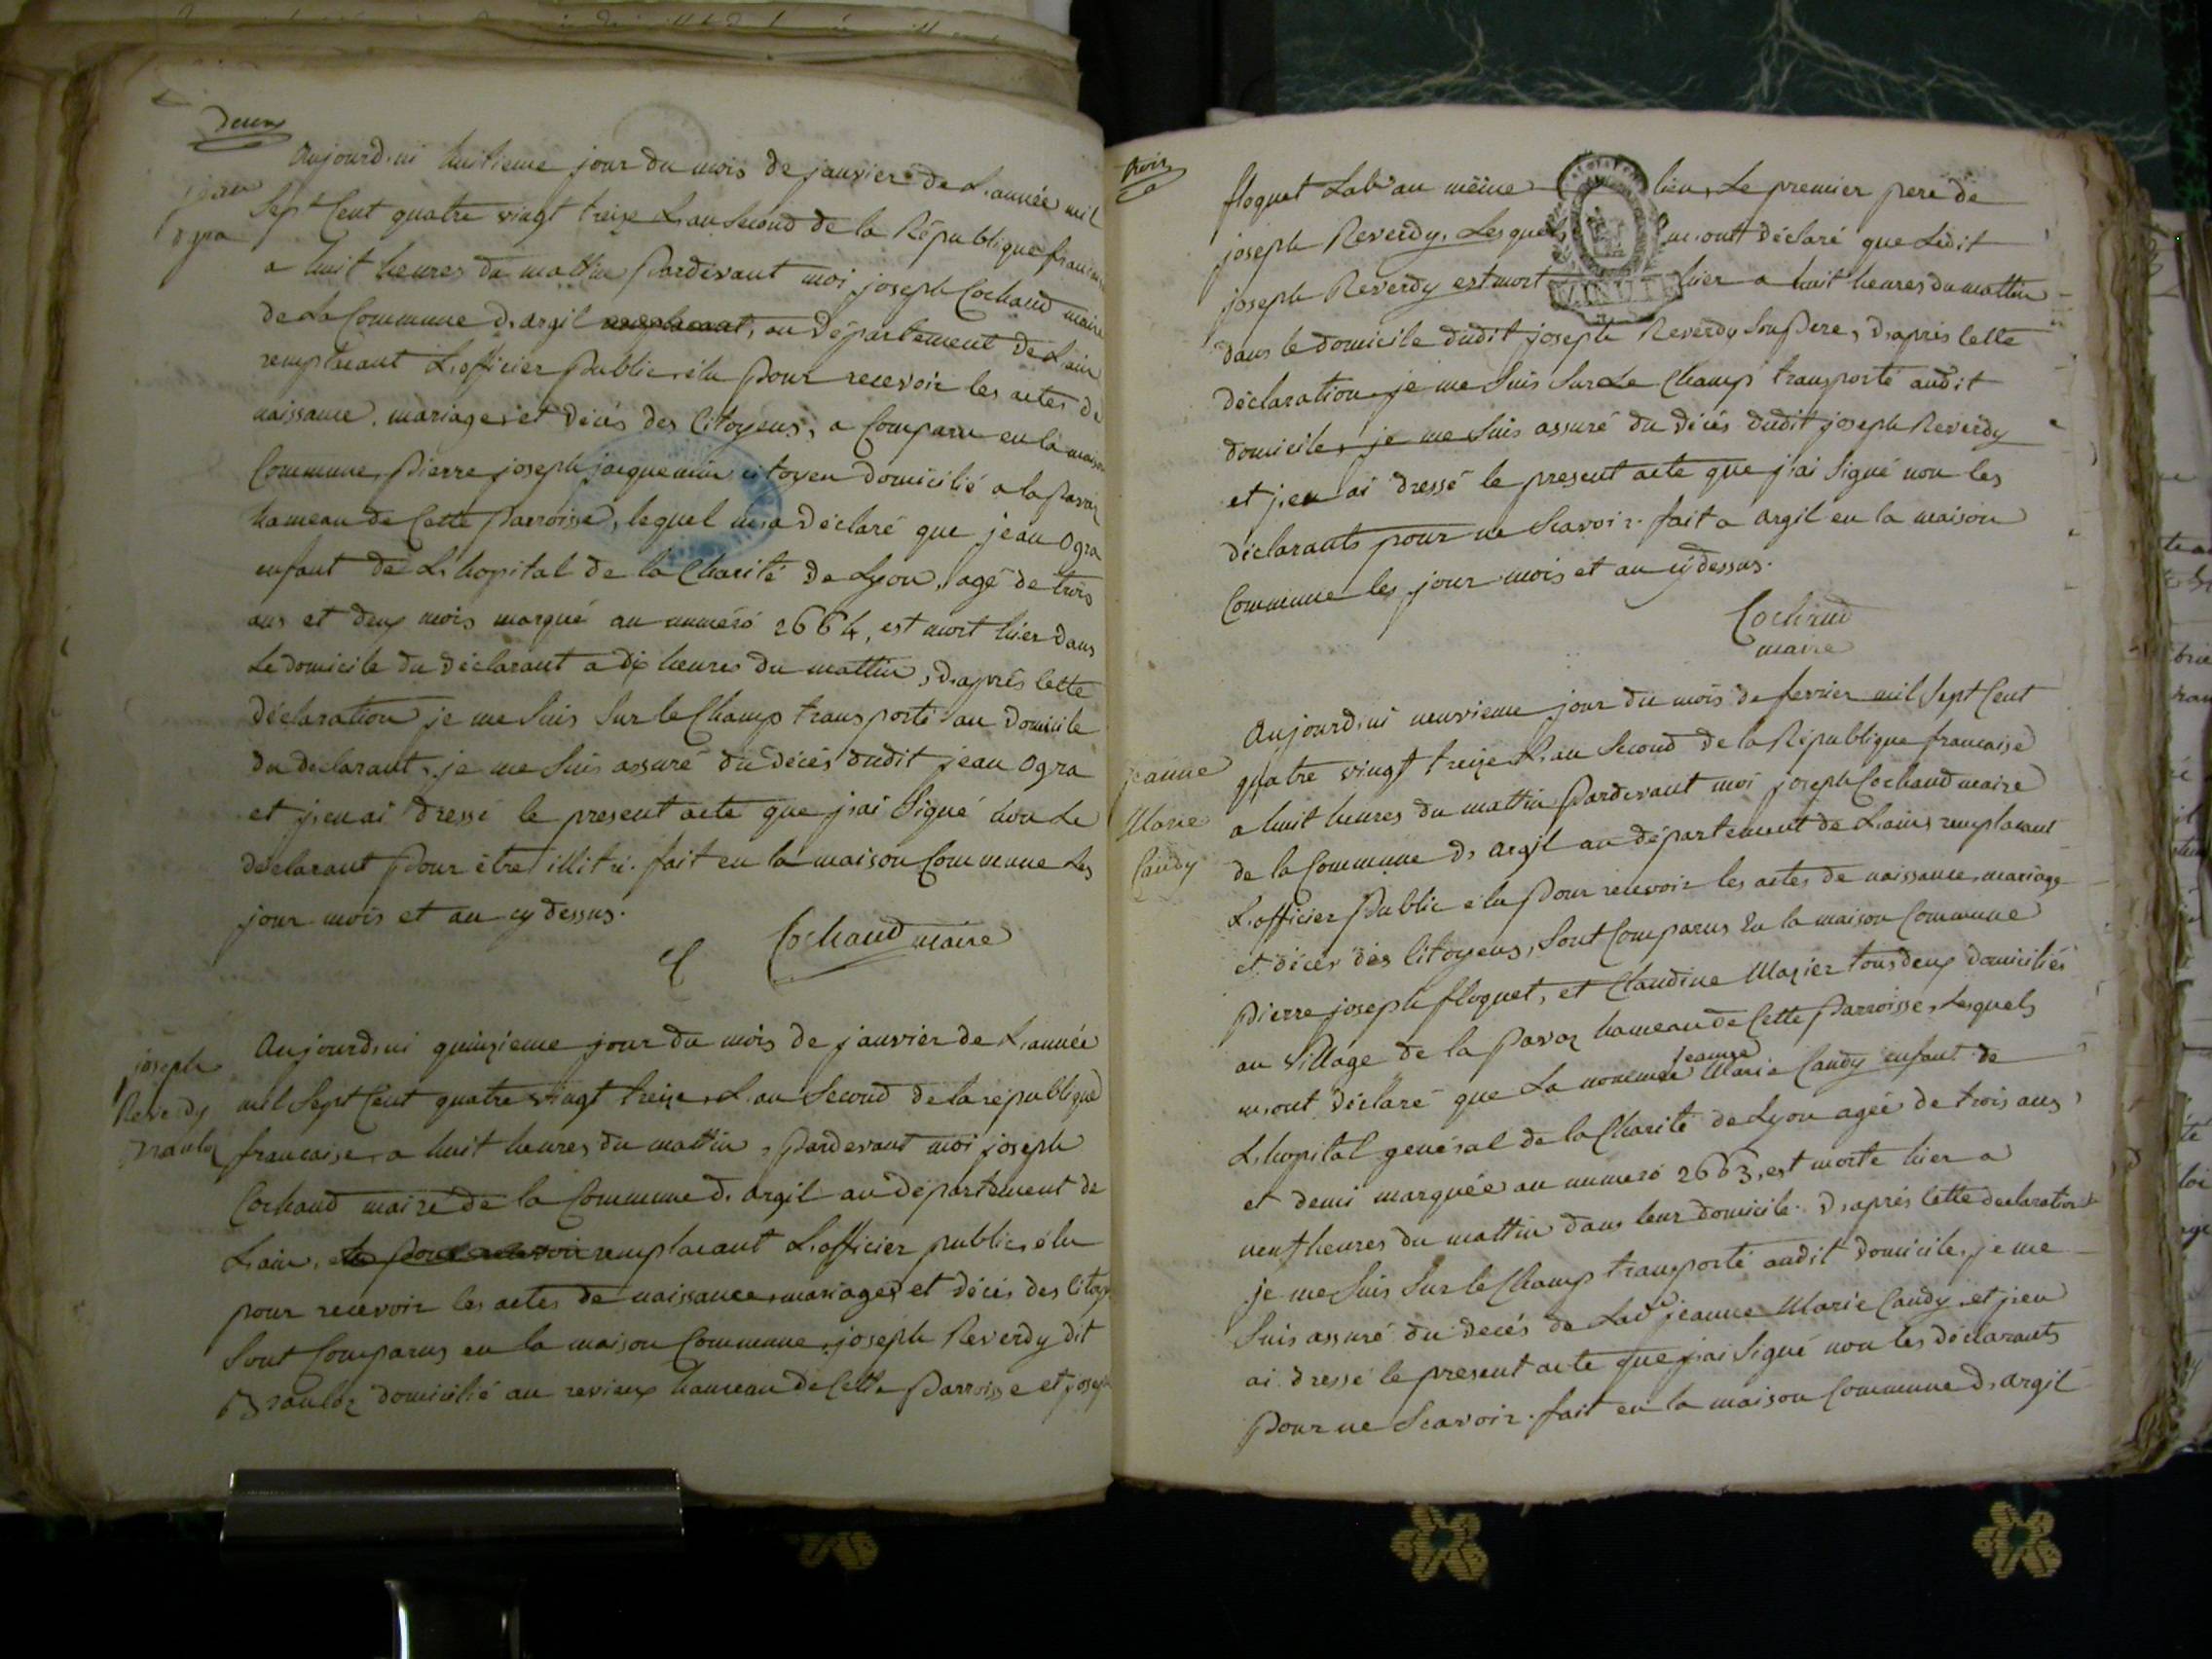 deux
Aujourd'ui huitieme jour du mois de janvier de L'année mil
jean
ogra
Sept Cent quatre vingt treize L'an Second de la République francaise
a huit heures du mattin Pardevant moi joseph Cochaud maire
de La Commune d'argil au Département de L'ain
remplacant L'officier Public élu Pour recevoir les actes de
naissance, mariages et décés des Citoyens, a Comparu en la maison
Commune, Pierre joseph jacquemin citoyen domicilié a la
hameau de Cette Parroisse, lequel m'a déclaré que jean Ogra
enfant de L'hopital de la Charité de Lyon, agé de trois
ans et deux mois marqué au numéro 2664, est mort hier dans
Le domicile du déclarant a dix heures du mattin, d'aprés Cette
déclaration je me Suis Sur le Champ transporté au domicile
du déclarant, je me Suis assuré du décés dudit jean Ogra
et j'en ai dressé le present acte que j'ai Signé non Le
déclarant Pour être illitré. fait en la maison Commune Les
jour mois et an cy dessus.
Cochaud maire
Aujourd'ui quinzieme jour du mois de janvier de L'année
joseph
Reverdy
mil Sept Cent quatre vingt treize, L'an Second de la république
francaise, a huit heures du mattin, Pardevant moi joseph
Cochaud maire de la Commune d'argil au département de
L'ain, remplacant L'officier public, élu
pour recevoir les actes de naissances, mariages et décés des Citoy
Sont Comparus en la maison Commune, joseph Reverdy dit
domicilié au revieux hameau de Cette Parroisse et joseph
trois
floquet Lab.r au même lieu, Le premier pere de
joseph Reverdy, Lesquels m'ont déclaré que Ledit
joseph Reverdy est mort hier a huit heures du mattin
MINUTE
dans le domicile dudit joseph Reverdy Son Pere, d'aprés Cette
déclaration, je me Suis Sur Le Champ transporté audit
domicile, je me Suis assuré du décés dudit joseph Reverdy
et j'en ai dressé le present acte que j'ai Signé non les
déclarants pour ne Scavoir. fait a argil en la maison
Commune les jour mois et an cÿ dessus.
Cochaud
maire
Aujourd'ui neuvieme jour du mois de fevrier mil Sept Cent
jeanne
Marie
Candy
quatre vingt treize L'an Second de la République francaise
a huit heures du mattin Pardevant moi joseph Cochaud maire
de la Commune d'argil au département de L'ain, remplacant
L'officier Public élu Pour recevoir les actes de naissance, mariage
et décés des Citoyens, Sont Comparus En la maison Commune
Pierre joseph floquet, et Claudine Mazier tous deux domiciliés
au Village de la Pavaz hameau de Cette Parroisse, Lesquels
m'ont déclaré que La nommée jeanne Marie Candy enfant de
L'hopital general de la Charité de Lyon agée de trois ans
et demi marquée au numero 2663, est morte hier a
neuf heures du mattin dans leur domicile. D'aprés Cette declaration
je me Suis Sur le Champ transporté audit domicile, je me
Suis assuré du decés de Lad.e jeanne Marie Candy, et j'en
ai dressé le present acte que j'ai Signé non les déclarants
Pour ne Scavoir. fait en la maison Commune d'argil